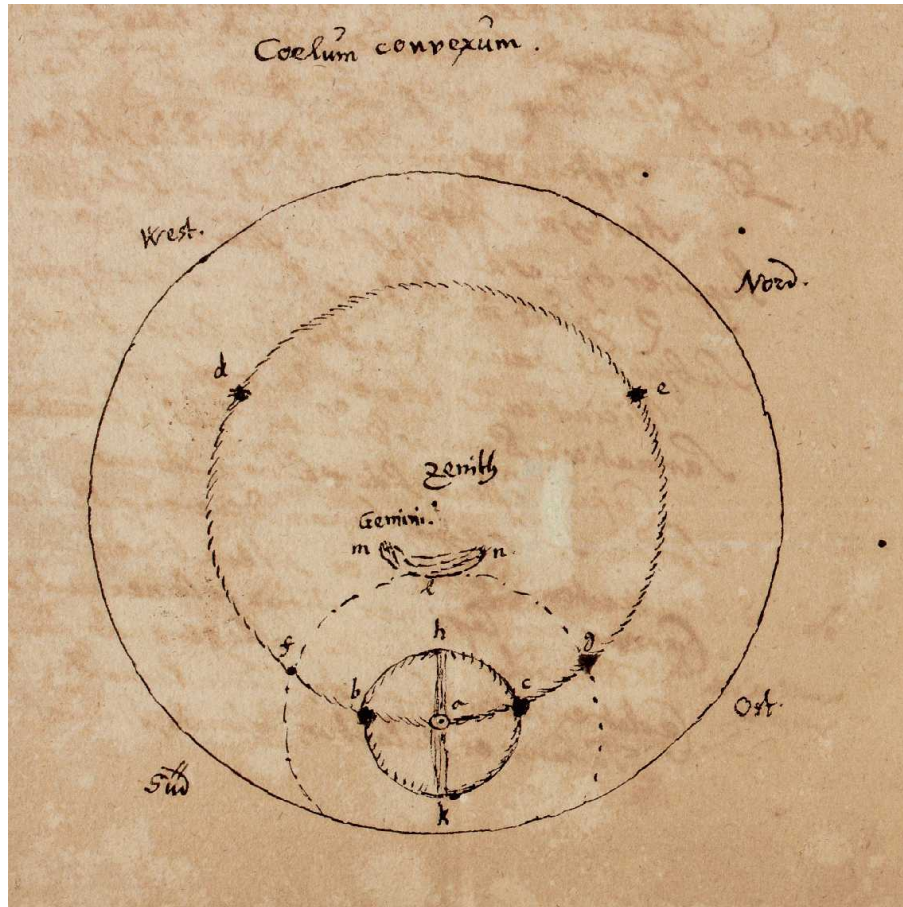 Coelum convexum.
West.
Nord.
d
e
Zenith
Gemini.
m
n
l
f
h
g
b
a
c
Ost.
Süd
k